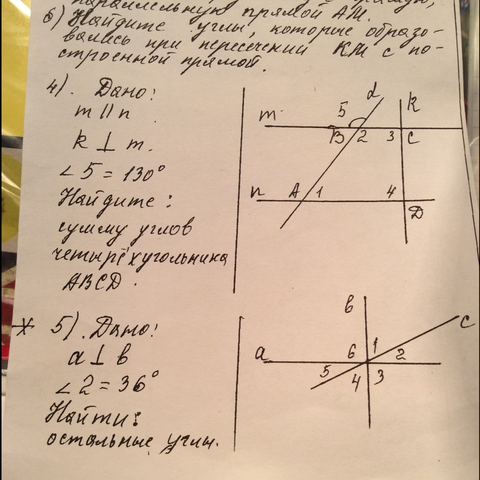 параллельную прямой AM.
б) Найдите углы, которые образо-
вались при пересечении KM с по-
строенной прямой.
4). Дано:
m || n
k ⊥ m.
∠5 = 130°
Найдите:
сумму углов
четырёхугольника
ABCD.
m
5
d
k
B
2
3
C
n
A
1
4
D
* 5). Дано:
a ⊥ b
∠2 = 36°
Найти:
остальные углы.
в
c
a
6
1
2
5
4
3